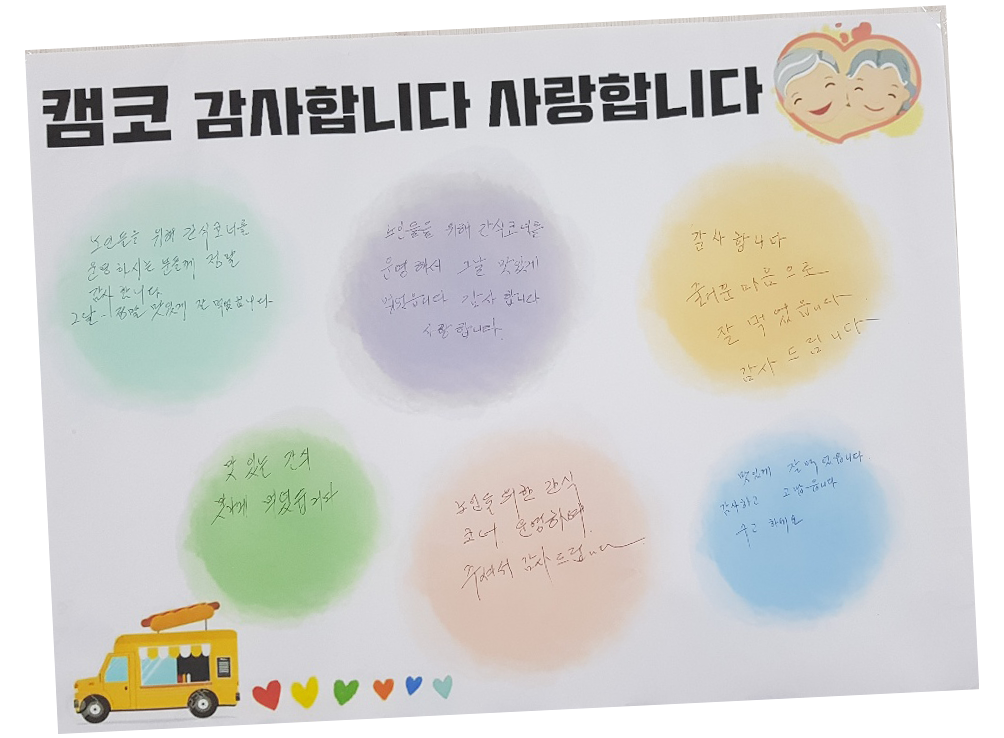 캠코 감사합니다 사랑합니다
노인들을 위해 간식코너를
운영하시는 분들께 정말
감사합니다
그날 정말 맛있게 잘 먹었습니다
노인들을 위해 간식코너를
운영해서 그날 맛있게
먹었읍니다 감사합니다
사랑합니다.
감사합니다
즐거운 마음으로
잘 먹었읍니다
감사드립니다
맛있는 간식
맛있게 먹었습니다
노인을 위한 간식
코너 운영하며
주셔서 감사드립니다
맛있게 잘먹었읍니다
감사하고 고맙습니다
하세요